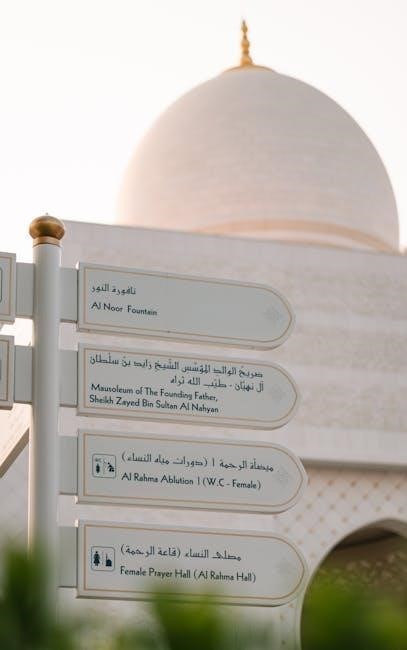 نافورة النور
Al Noor Fountain
ضريح الوالد المؤسّس الشّيخ زايد بن سلطان
آل نهيّان - طيّب الله ثراه
Mausoleum of The Founding Father,
Sheikh Zayed Bin Sultan Al Nahyan
ميضأة الرحمة 1 (دورات مياه النساء)
Al Rahma Ablution 1 (W.C - Female)
مصلى النساء (قاعة الرحمة)
Female Prayer Hall (Al Rahma Hall)